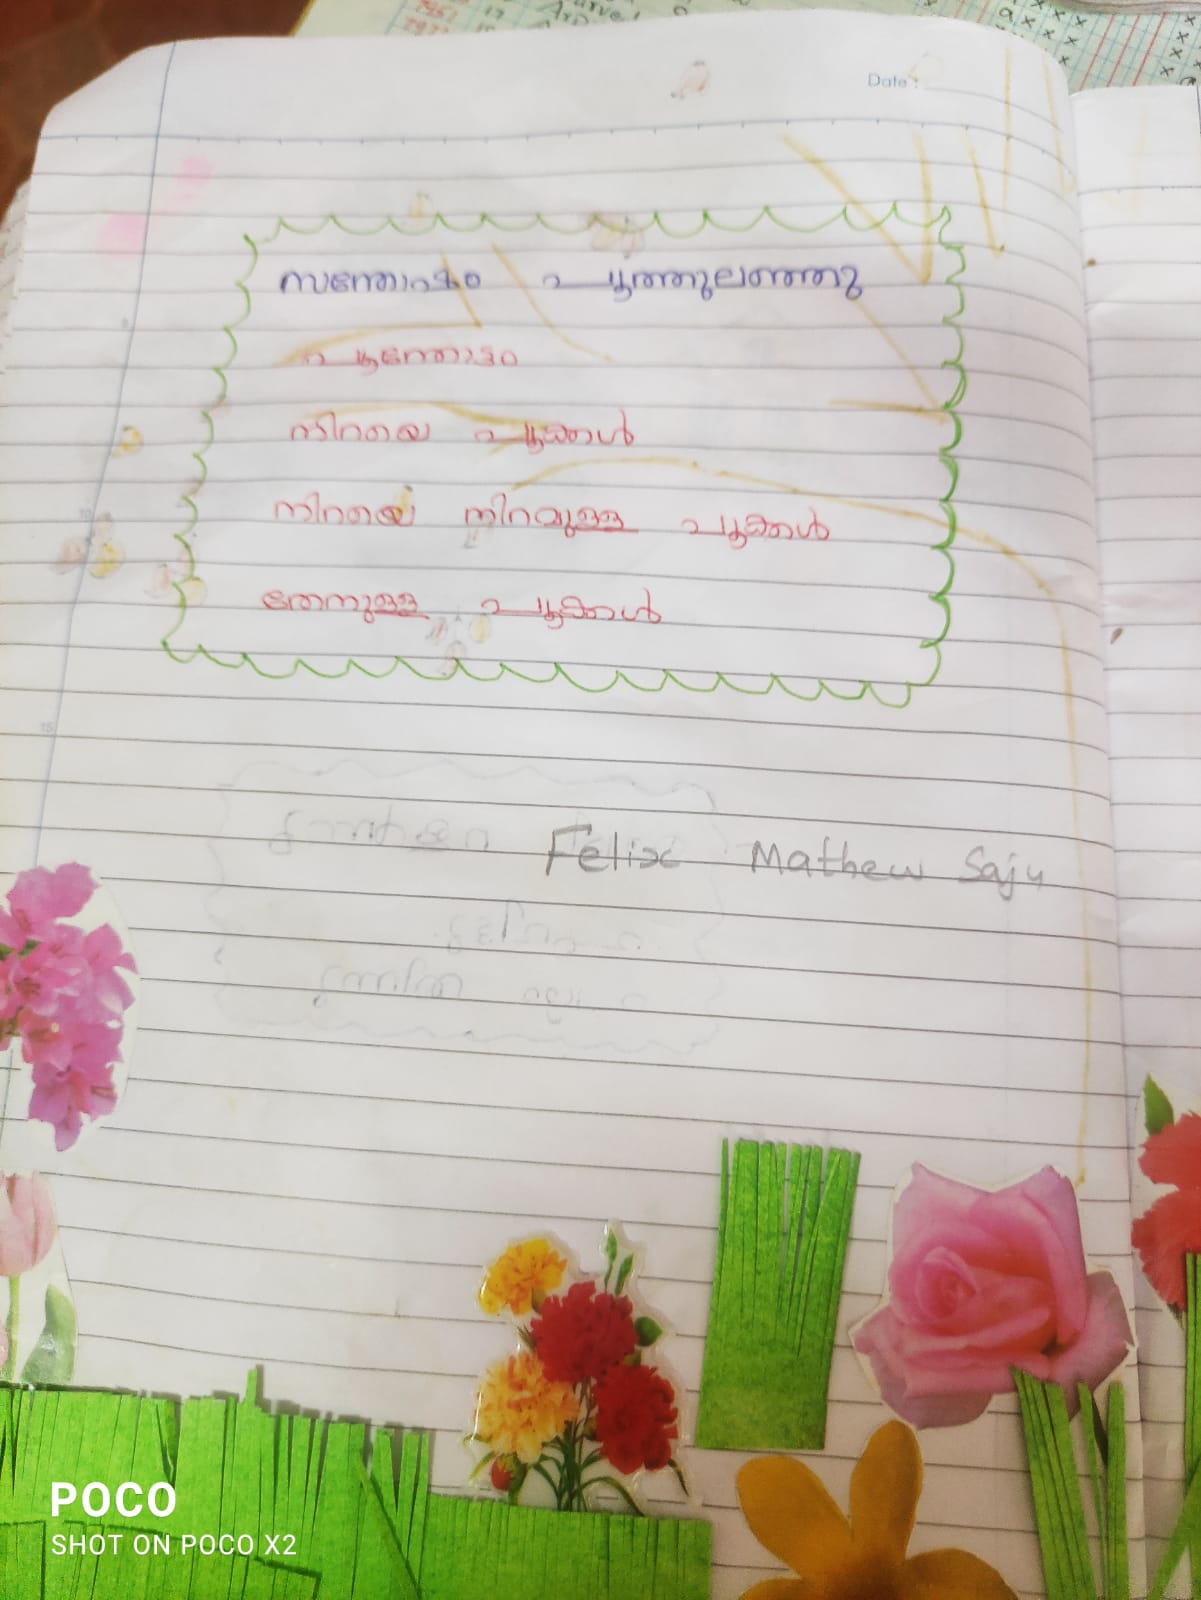 Date :
സന്തോഷം പൂത്തുലഞ്ഞു
പൂന്തോട്ടം
നിറയെ പൂക്കൾ
നിറയെ നിറമുള്ള പൂക്കൾ
തേനുള്ള പൂക്കൾ
Felix Mathew Saju
POCO
SHOT ON POCO X2